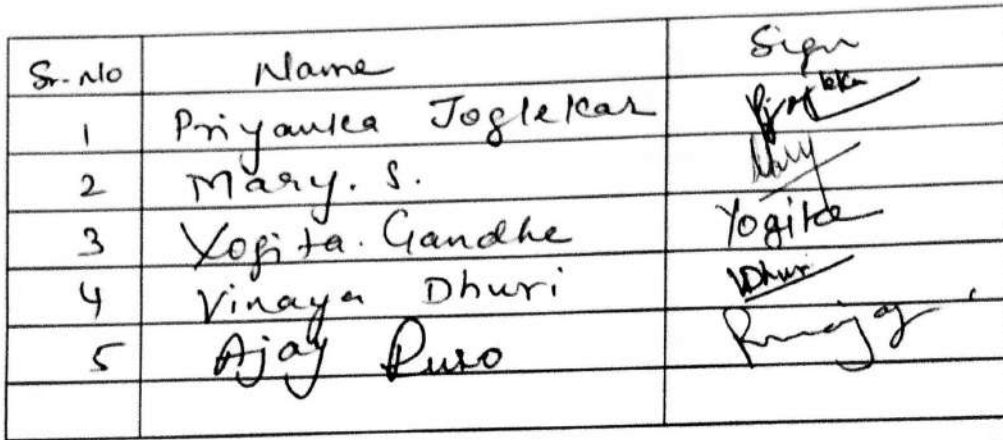 Sr. No Name Sign
1 Priyanka Joglekar
2 Mary. S. Mary
3 Yogita. Gandhe Yogita
4 Vinaya Dhuri VDhuri
5 Ajay